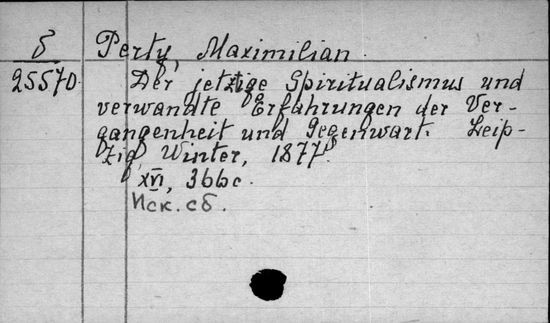 б
25570
Perty, Maximilian.
Der jetzige Spiritualismus und
verwandte Erfahrungen der Ver-
gangenheit und Gegenwart. Leip-
zig, Winter, 1877.
XVI, 366 с.
Иск. сб.